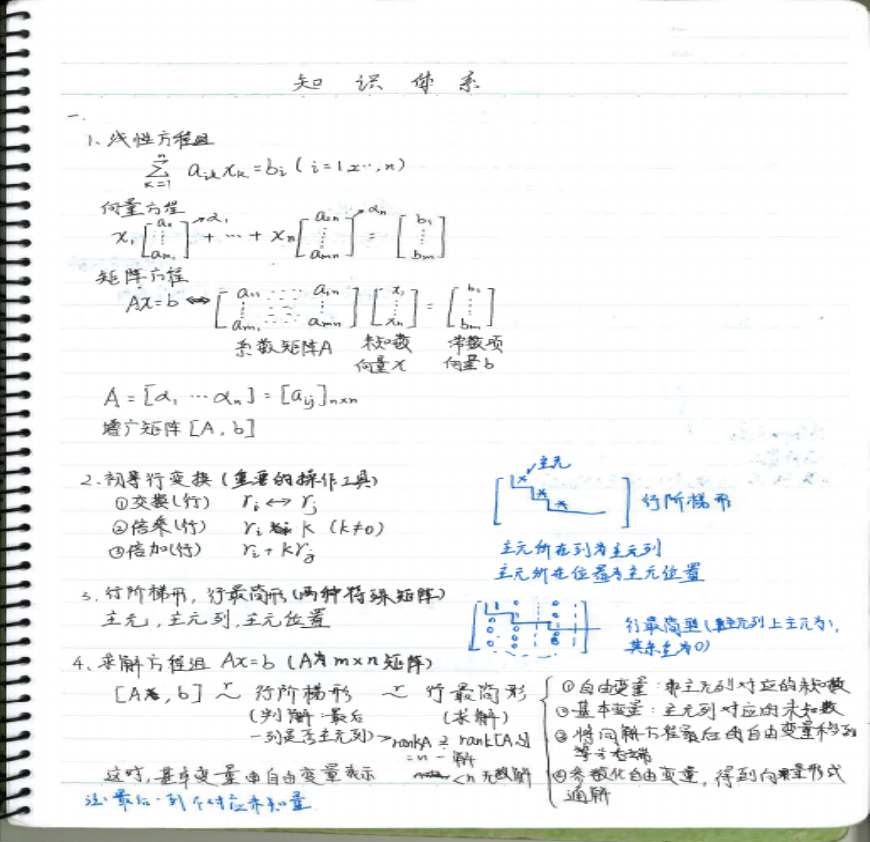 知识体系
一.
1、线性方程组
∑ₖ₌₁ⁿ aᵢₖxₖ=bᵢ (i=1,2…,n)
向量方程
x₁[a₁₁ ⋮ aₘ₁]→α₁ + … + xₙ[a₁ₙ ⋮ aₘₙ]→αₙ = [b₁ ⋮ bₘ]
矩阵方程
Ax=b ⇔ [a₁₁ … a₁ₙ ⋮ aₘ₁ … aₘₙ] [x₁ ⋮ xₙ] = [b₁ ⋮ bₘ]
系数矩阵A 未知数向量x 常数项向量b
A=[α₁ …αₙ]=[aᵢⱼ]ₙₓₙ
增广矩阵[A,b]
2.初等行变换(重要的操作工具)
①交换(行) rᵢ↔rⱼ
②倍乘(行) rᵢ k (k≠0)
③倍加(行) rᵢ+krⱼ
主元
行阶梯形
主元所在列为主元列
主元所在位置为主元位置
3.行阶梯形,行最简形(两种特殊矩阵)
主元,主元列,主元位置
行最简型(主元列上主元为1,
其余全为0)
4.求解方程组 Ax=b (A为m×n矩阵)
[A,b] ~ 行阶梯形 ~ 行最简形
(判解:最后
一列是否主元列)
(求解)
rankA = rank[A,b]
=n 一解
<n 无数解
①自由变量:非主元列对应的未知数
②基本变量:主元列对应的未知数
③将同解方程最后的自由变量移到
等号右端
④参数化自由变量,得到向量形式
通解
这时,基本变量由自由变量表示
注:最后一列不对应未知量